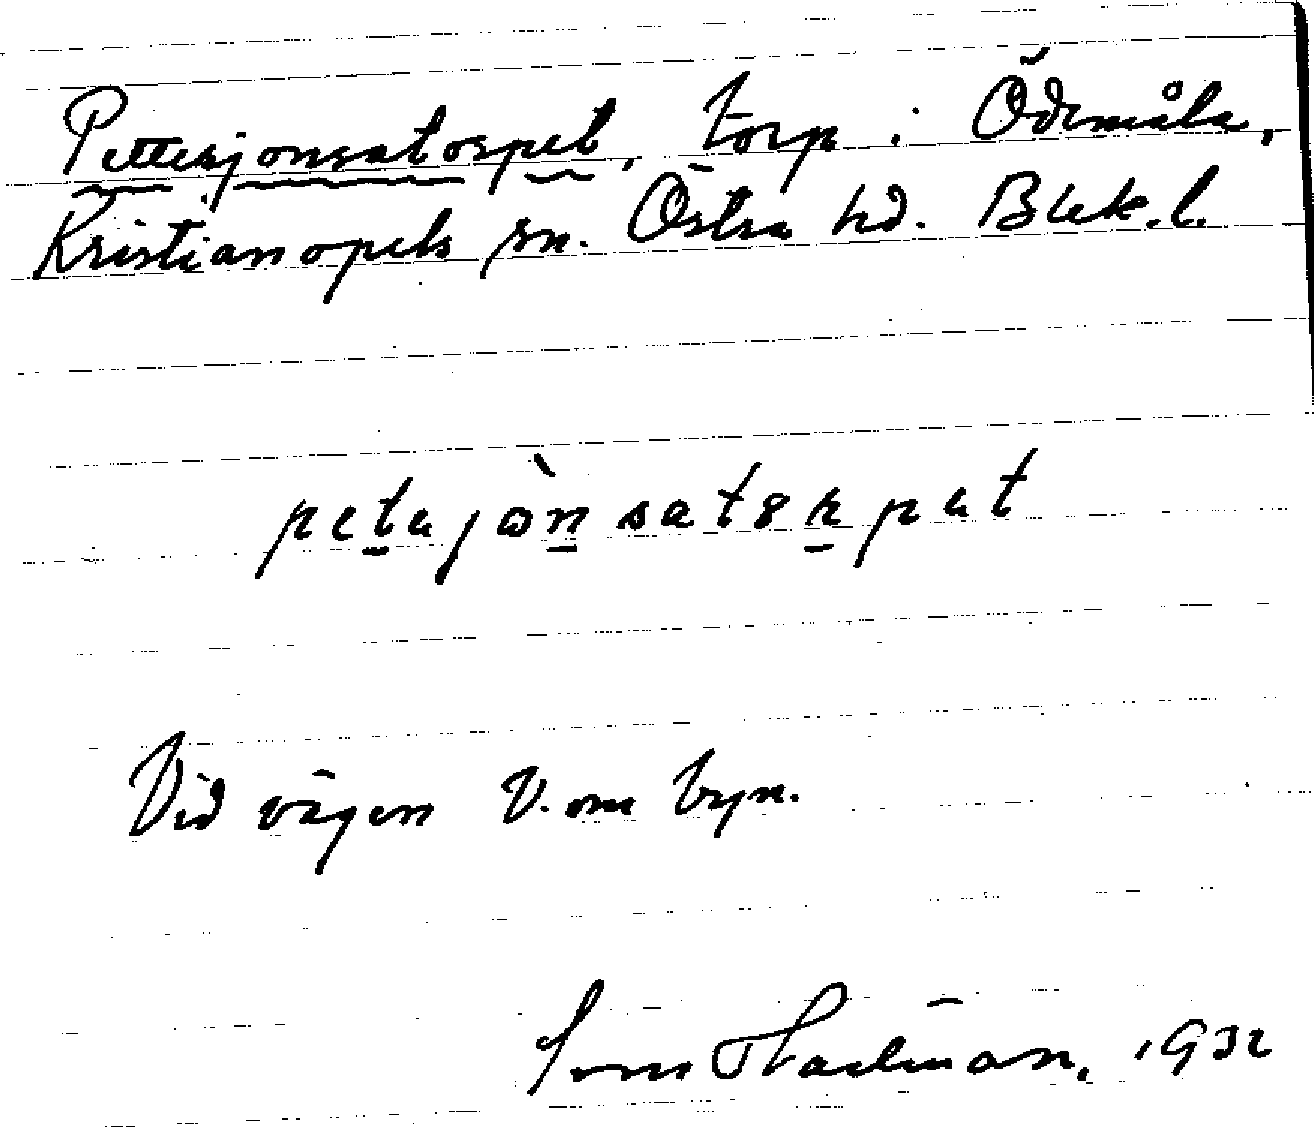 Pettersjonsatorpet, torp i Ödemåla,
Kristianopels sn. Östra hd. Blek. l.
petajònsatorpat
Vid vägen V. om byn.
1932